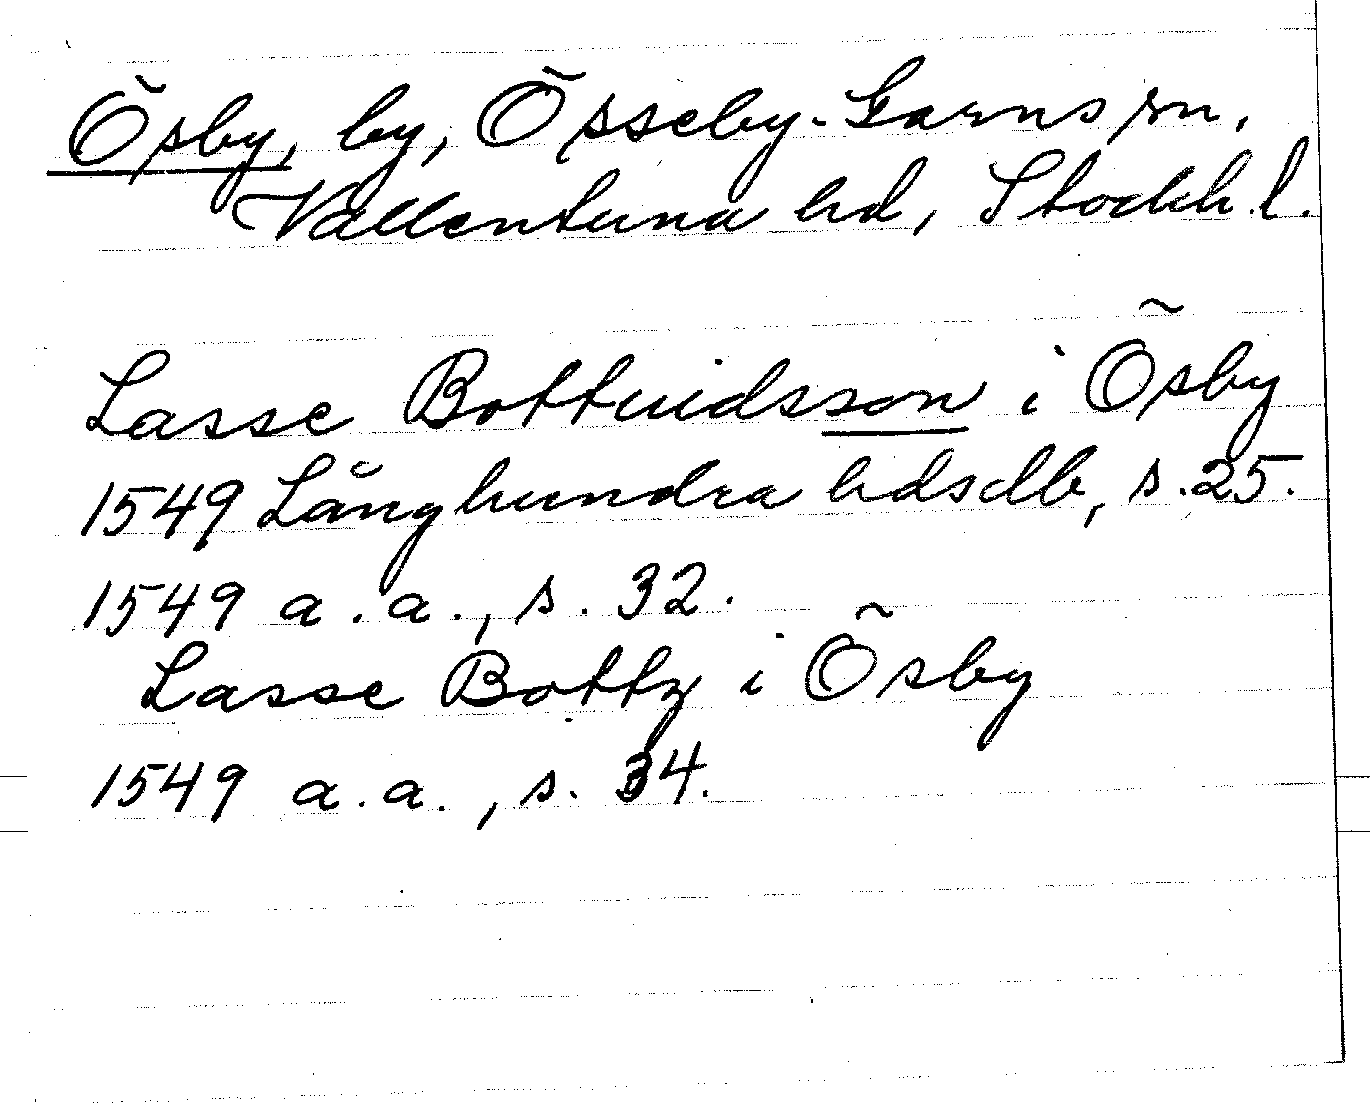 Ösby, by, Össeby-Garns sn,
Vallentuna hd, Stockh. l.
Lasse Bottuidsson i Ösby
1549 Långhundra hdsdb, s. 25.
1549 a. a., s. 32.
Lasse Botty i Ösby
1549 a. a., s. 34.